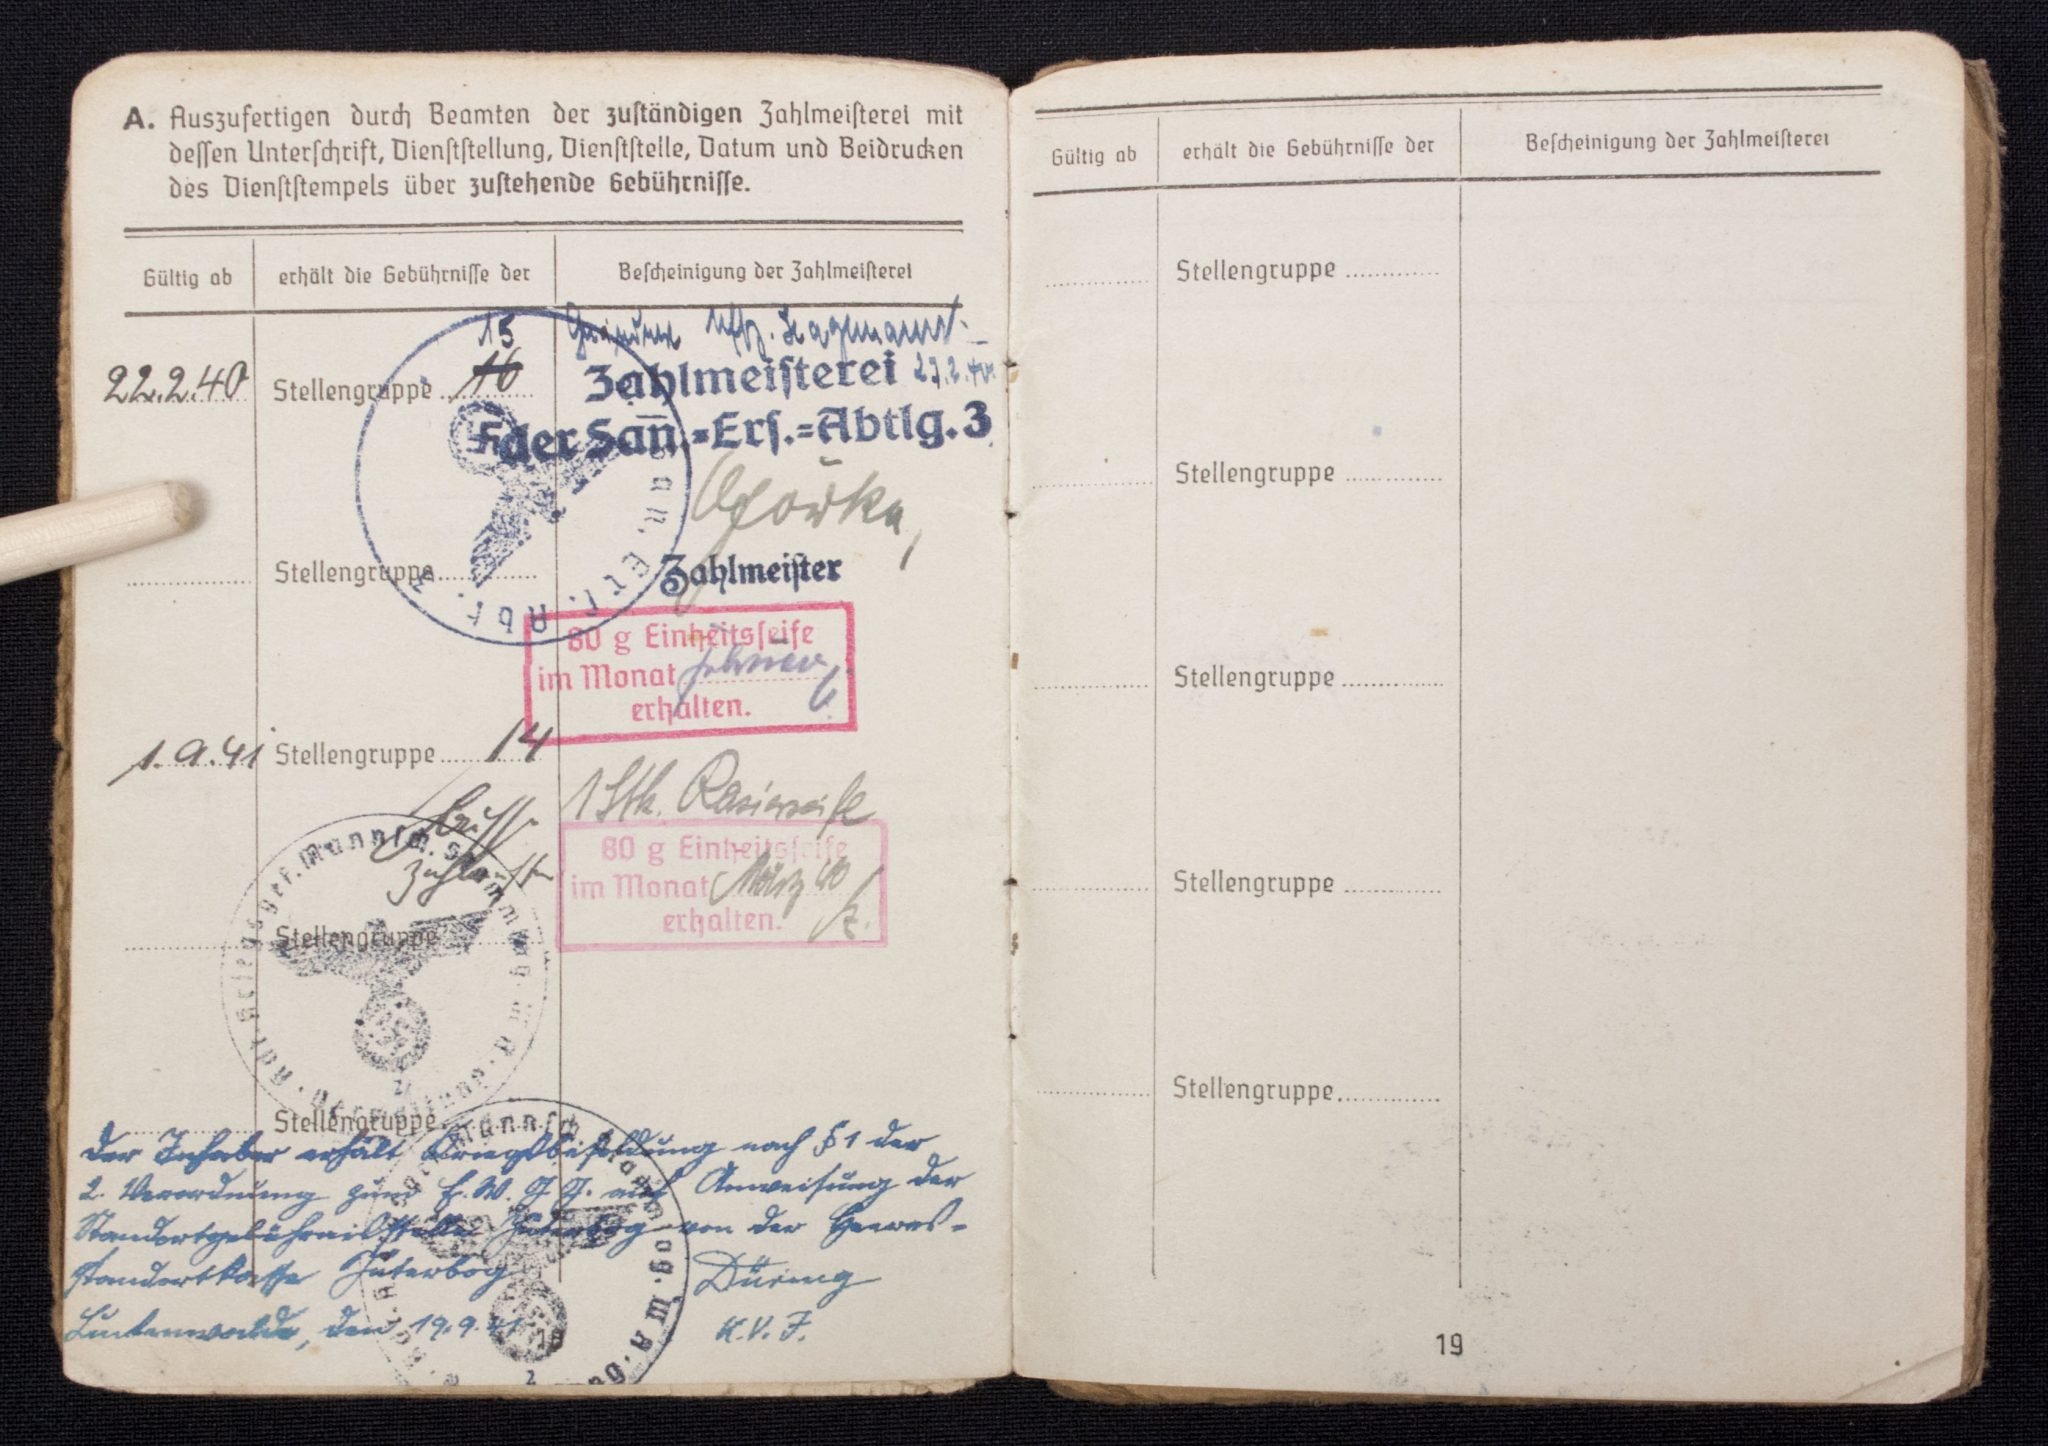 A. Auszufertigen durch Beamten der zuständigen Zahlmeisterei mit
dessen Unterschrift, Dienststellung, Dienststelle, Datum und Beidrucken
des Dienststempels über zustehende Gebührnisse.
Gültig ab erhält die Gebührnisse der Bescheinigung der Zahlmeisterei
15
22.2.40 Stellengruppe 16
Zahlmeisterei
der San.=Ers.=Abtlg. 3
Stellengruppe
Zahlmeister
80 g Einheitsseife
im Monat Februar
erhalten.
1.9.41 Stellengruppe 14
1 Stk. Rasierseife
80 g Einheitsseife
im Monat März 40
erhalten.
Stellengruppe
Stellengruppe
Der Inhaber erhält Kriegsbesoldung nach § 1 der
2. Verordnung zum E.W.G.G. auf Anweisung der
Standortgebührnisstelle Jüterbog von der Heeres-
standortkasse Jüterbog
Düring
Luckenwalde, den 19.9.41
K.V.I.
18
Gültig ab erhält die Gebührnisse der Bescheinigung der Zahlmeisterei
Stellengruppe
Stellengruppe
Stellengruppe
Stellengruppe
Stellengruppe
19